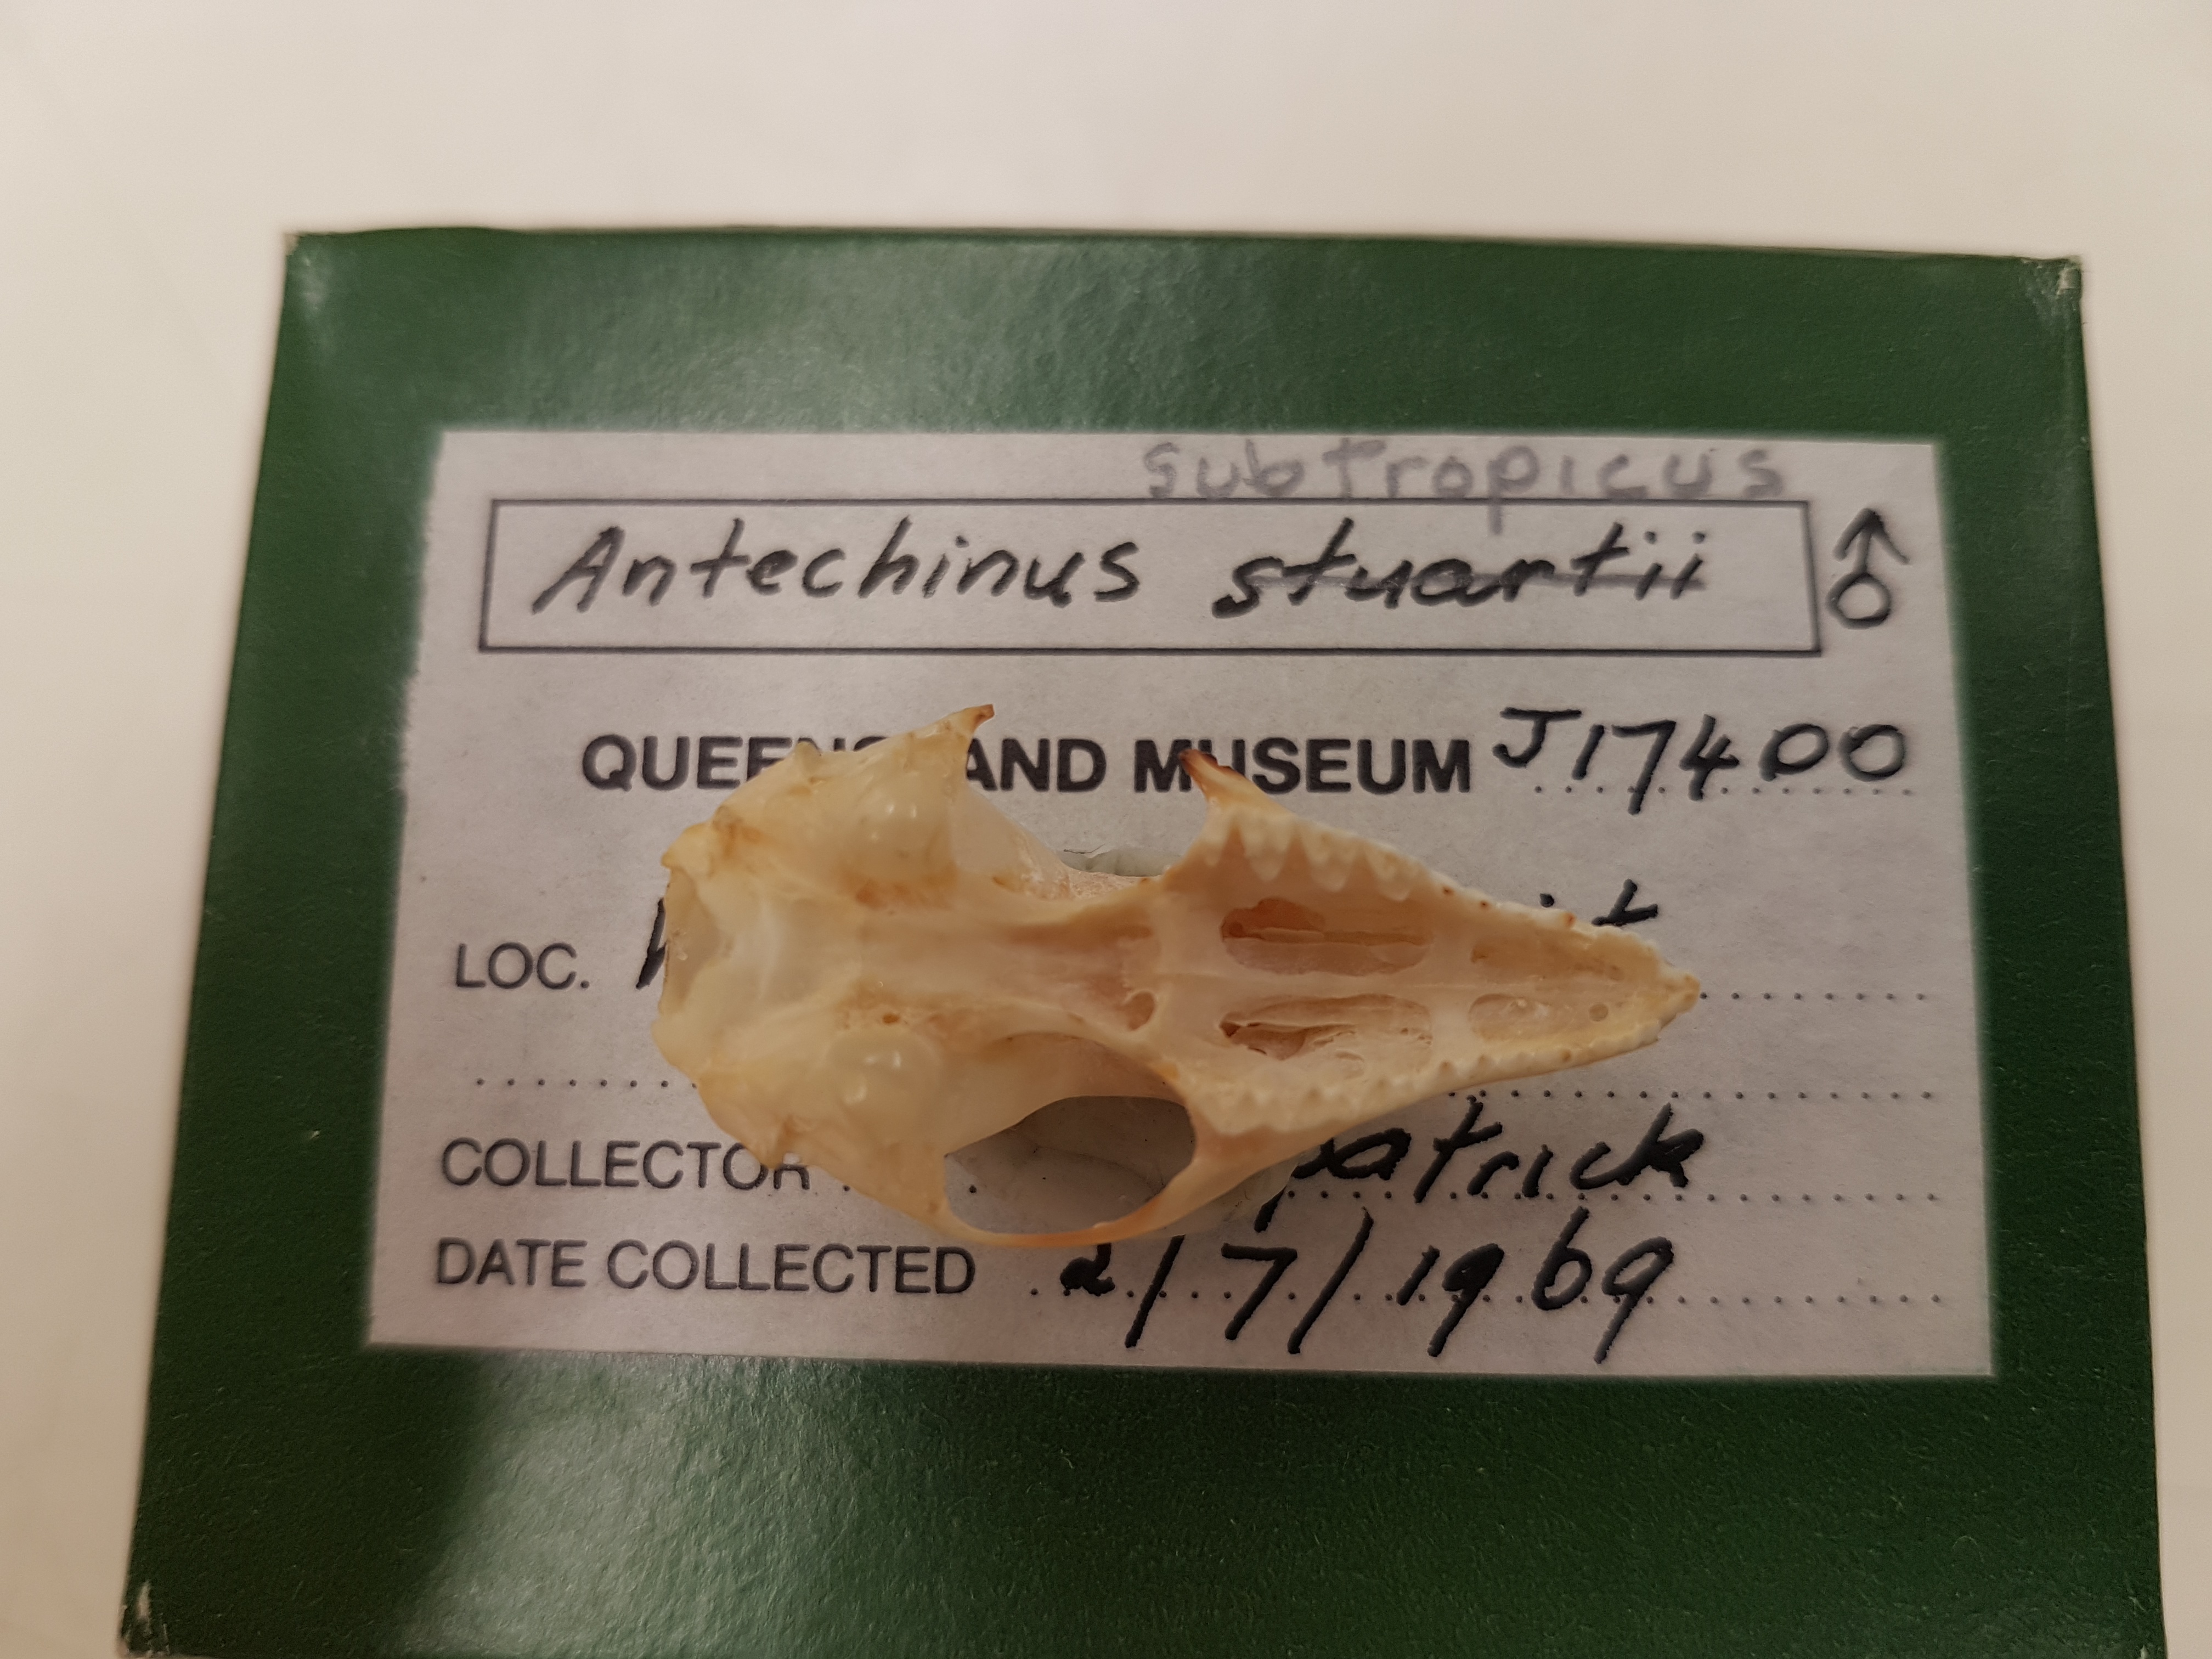 subtropicus
Antechinus stuartii ♂
MUSEUM J17400
LOC.
COLLECTOR
DATE COLLECTED 2/7/1969